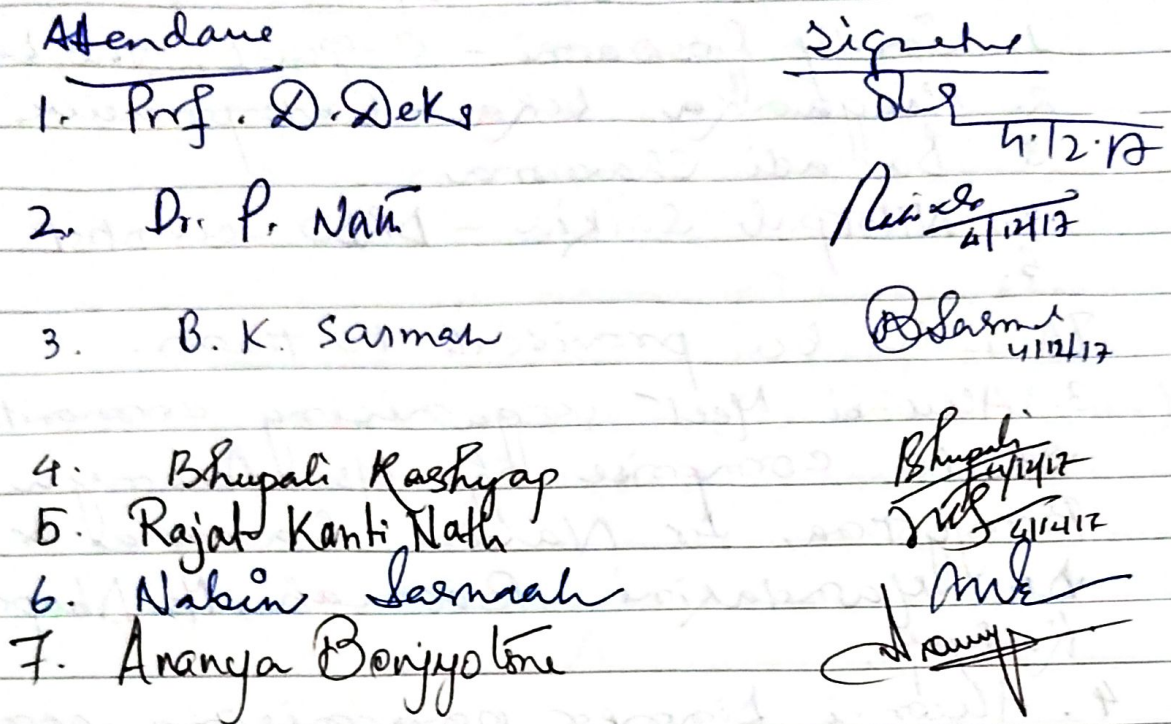 Attendance Signature
1. Prof. D. Deka 4.12.17
2. Dr. P. Nath 4/12/17
3. B. K. Sarmah B Sarma 4/12/17
4. Bhupali Kashyap Bhupali 4/12/17
5. Rajat Kanti Nath 4/12/17
6. Nabin Sarmah
7. Ananya Bonjyotsna Ananya